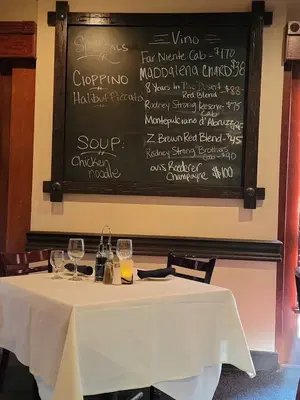 Specials
Cioppino
Halibut Piccata
Soup:
Chicken
noodle
Vino
Far Niente Cab - $170
Maddalena Chard $36
8 Years In The Desert $88
Red Blend
Rodney Strong Reserve $75
Cab
Montepulciano d'Abruzzo
Z Brown Red Blend - $45
Rodney Strong Brothers
Cab - $90
Louis Roederer
Champagne $100